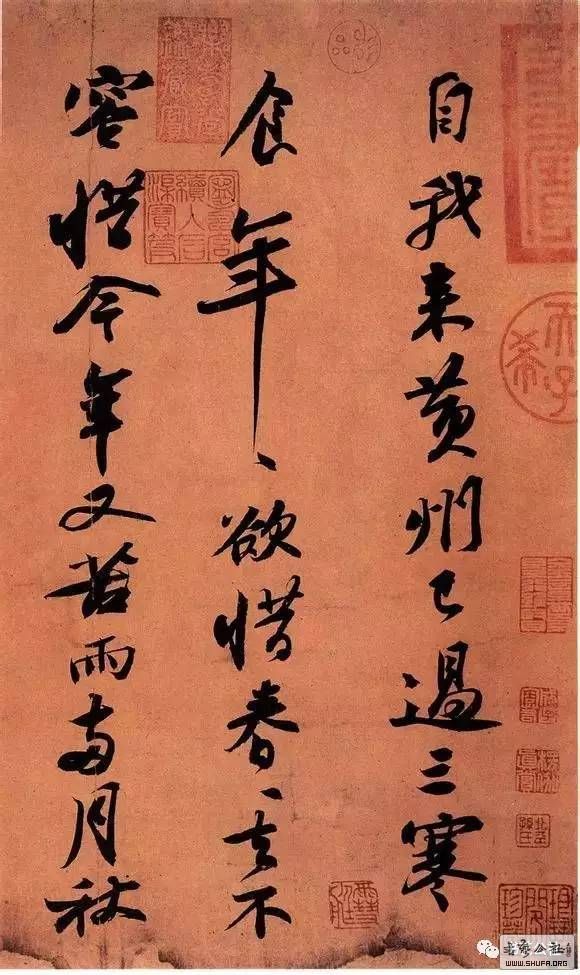 自我来黄州已過三寒
食年、欲惜春、去不
容惜今年又苦雨兩月秋
天子
希
書藝公社
WWW.SHUFA.ORG